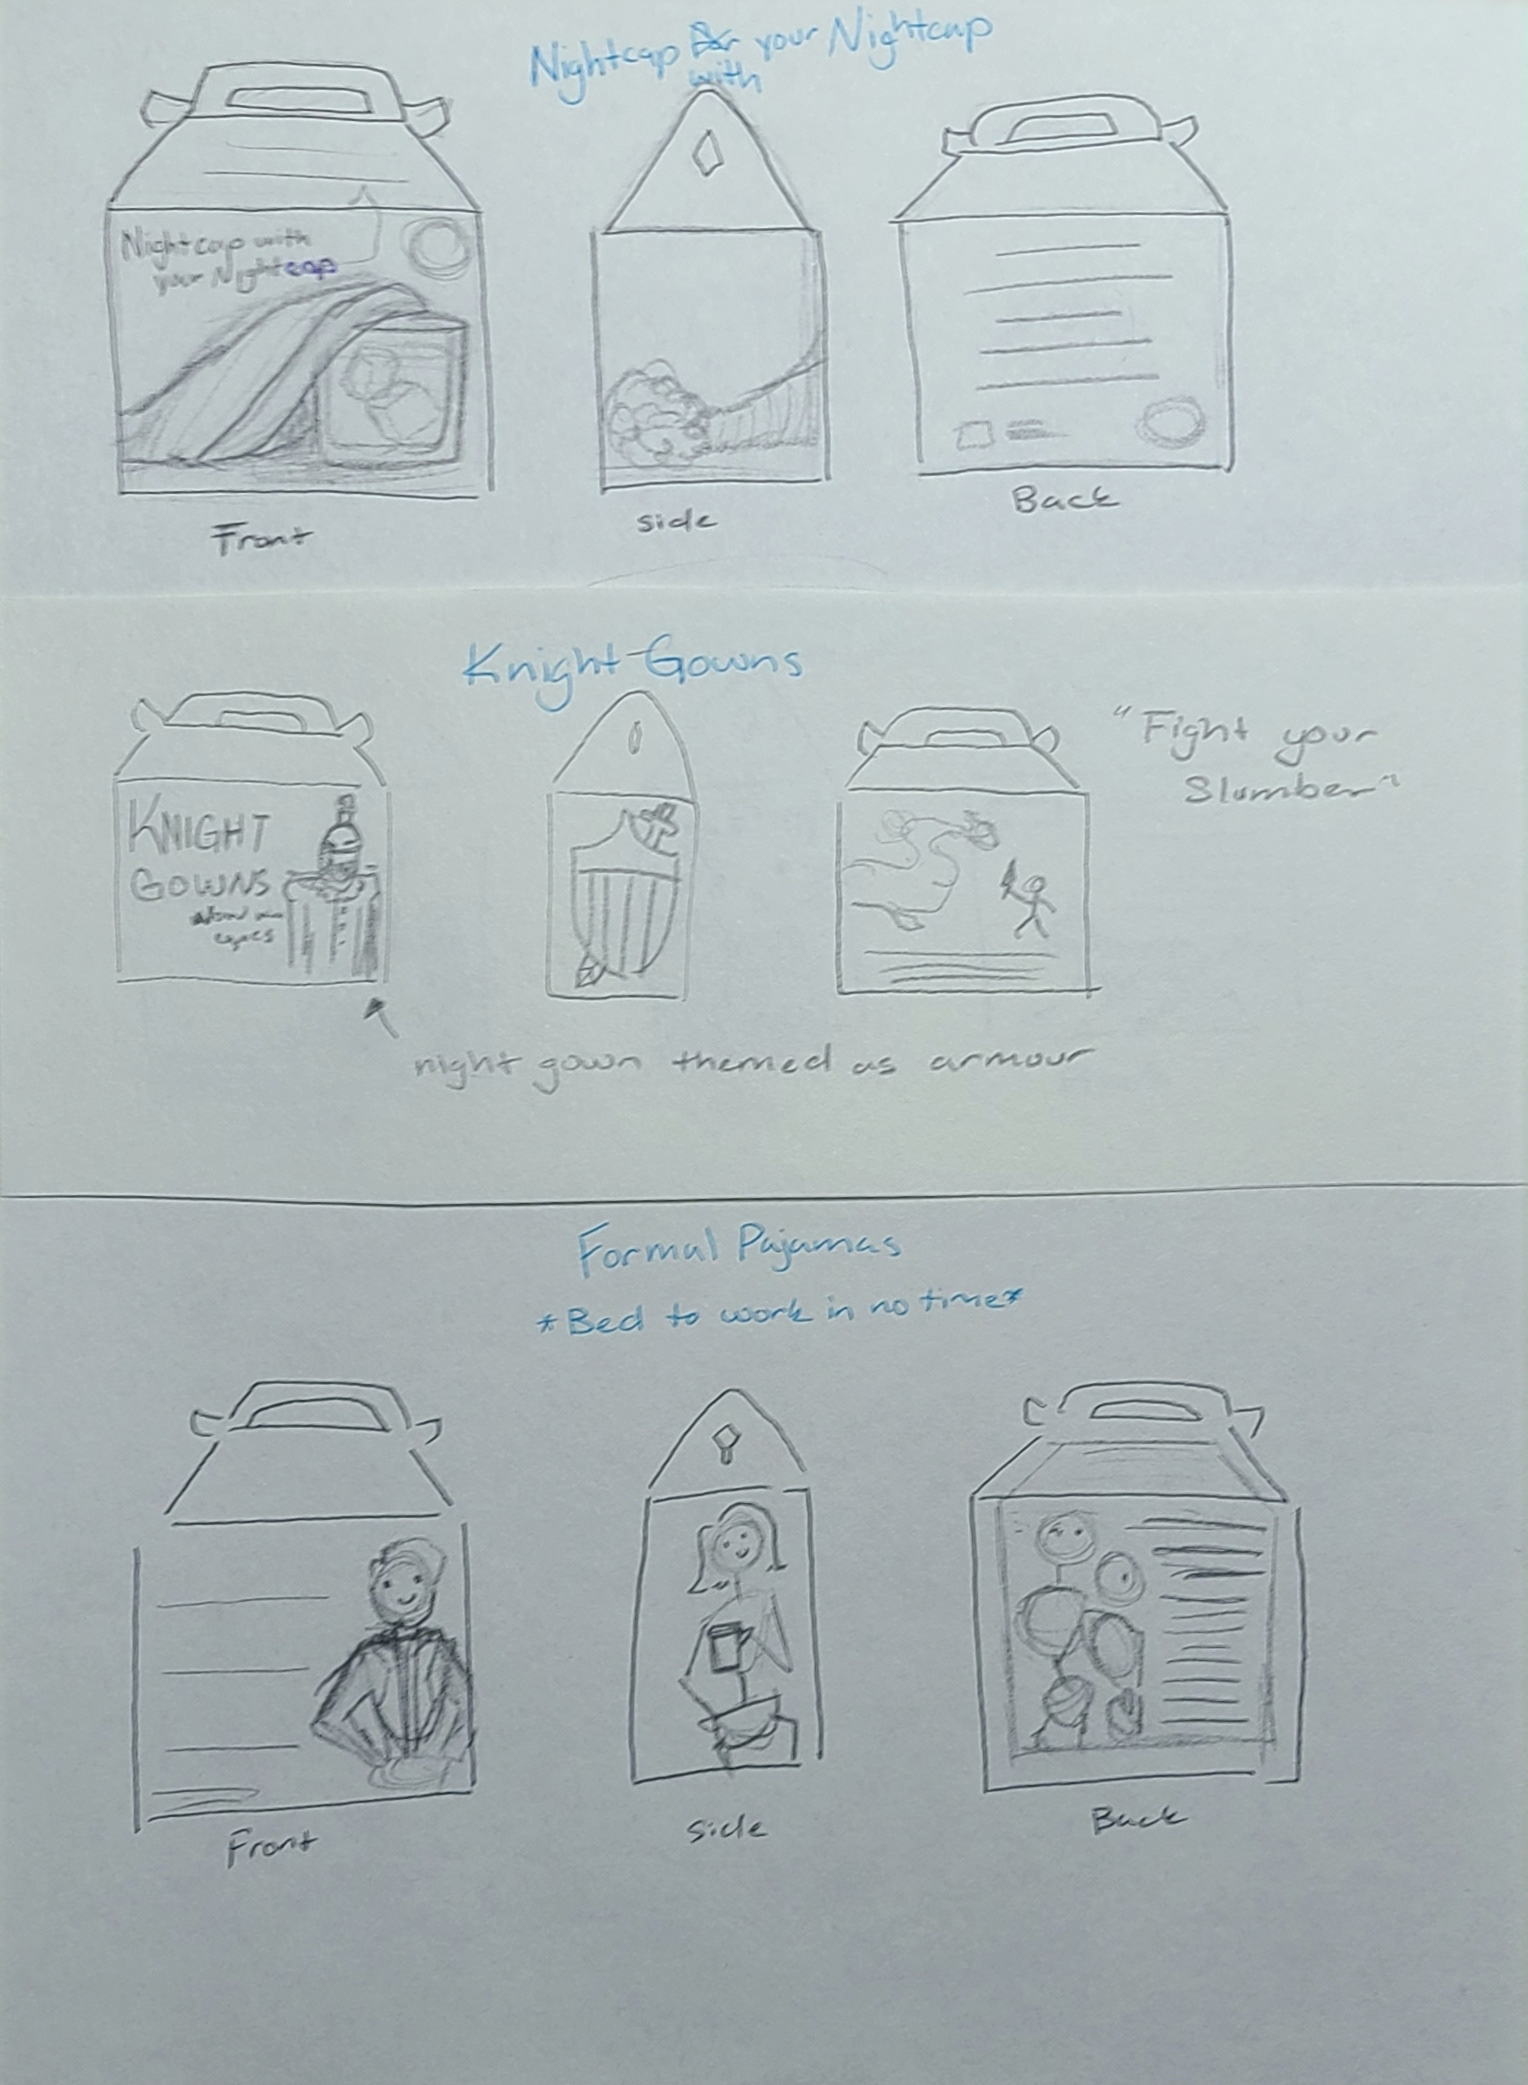 Nightcap for your Nightcap
with
Nightcap with
your Nightcap
Front
side
Back
Knight Gowns
"Fight your
Slumber"
KNIGHT
GOWNS
capes
night gown themed as armour
Formal Pajamas
*Bed to work in no time*
Front
side
Back